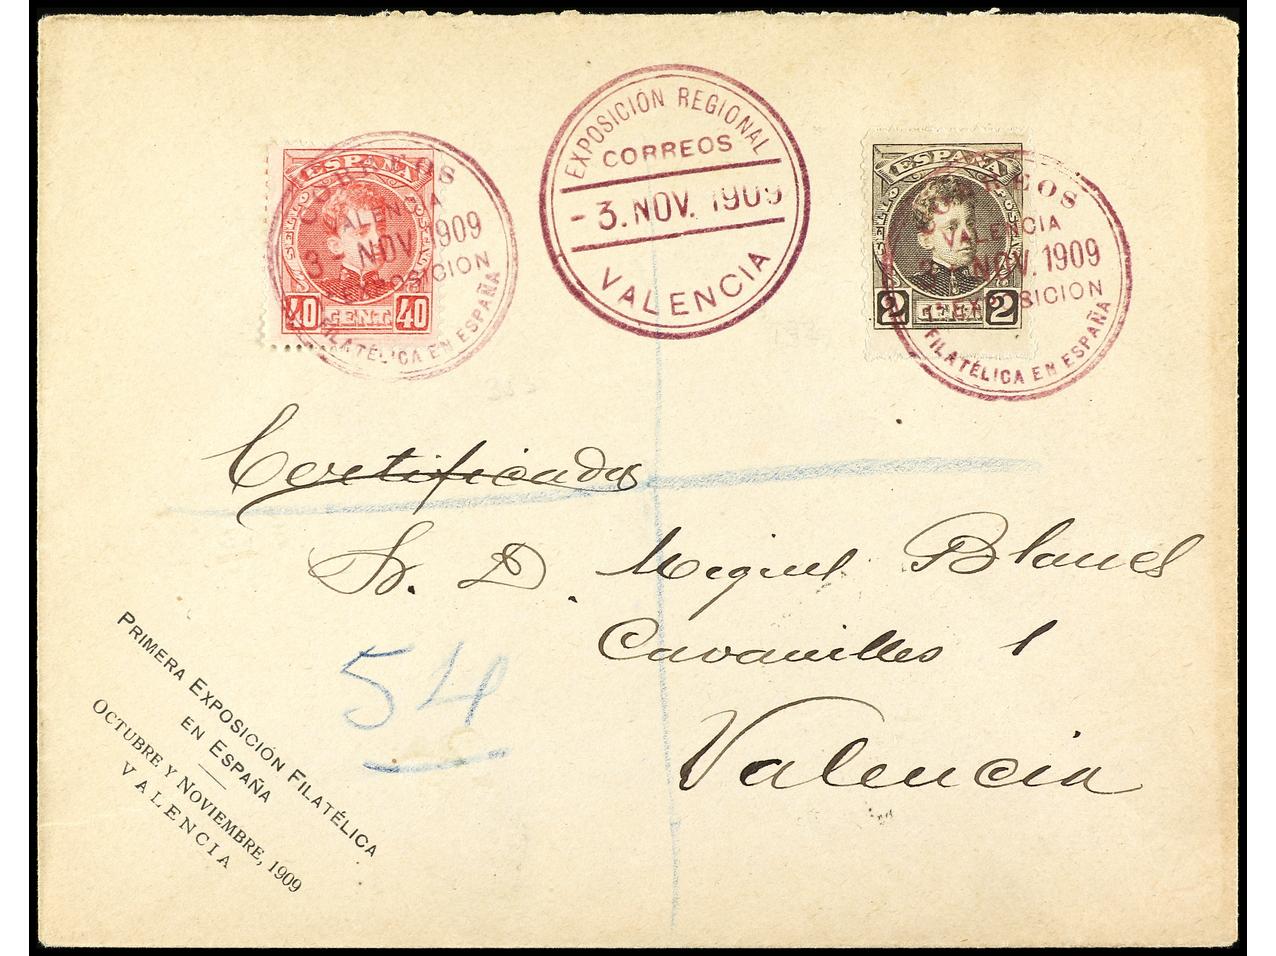 EXPOSICIÓN REGIONAL
CORREOS
- 3. NOV. 1909
VALENCIA
ESPAÑA
CORREOS
VALENCIA
3 NOV. 1909
EXPOSICION
FILATÉLICA EN ESPAÑA
40 CENT 40
ESPAÑA
CORREOS
VALENCIA
NOV. 1909
1ª EXPOSICION
FILATÉLICA EN ESPAÑA
2 CENT 2
Certificados
Sr. D. Miguel Blanch
Cavanilles 1
Valencia
54
PRIMERA EXPOSICIÓN FILATÉLICA
EN ESPAÑA
OCTUBRE Y NOVIEMBRE, 1909
VALENCIA